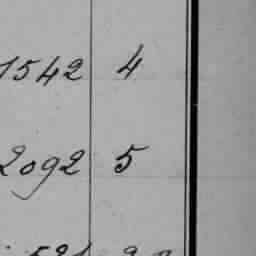 1542 4
2092 5